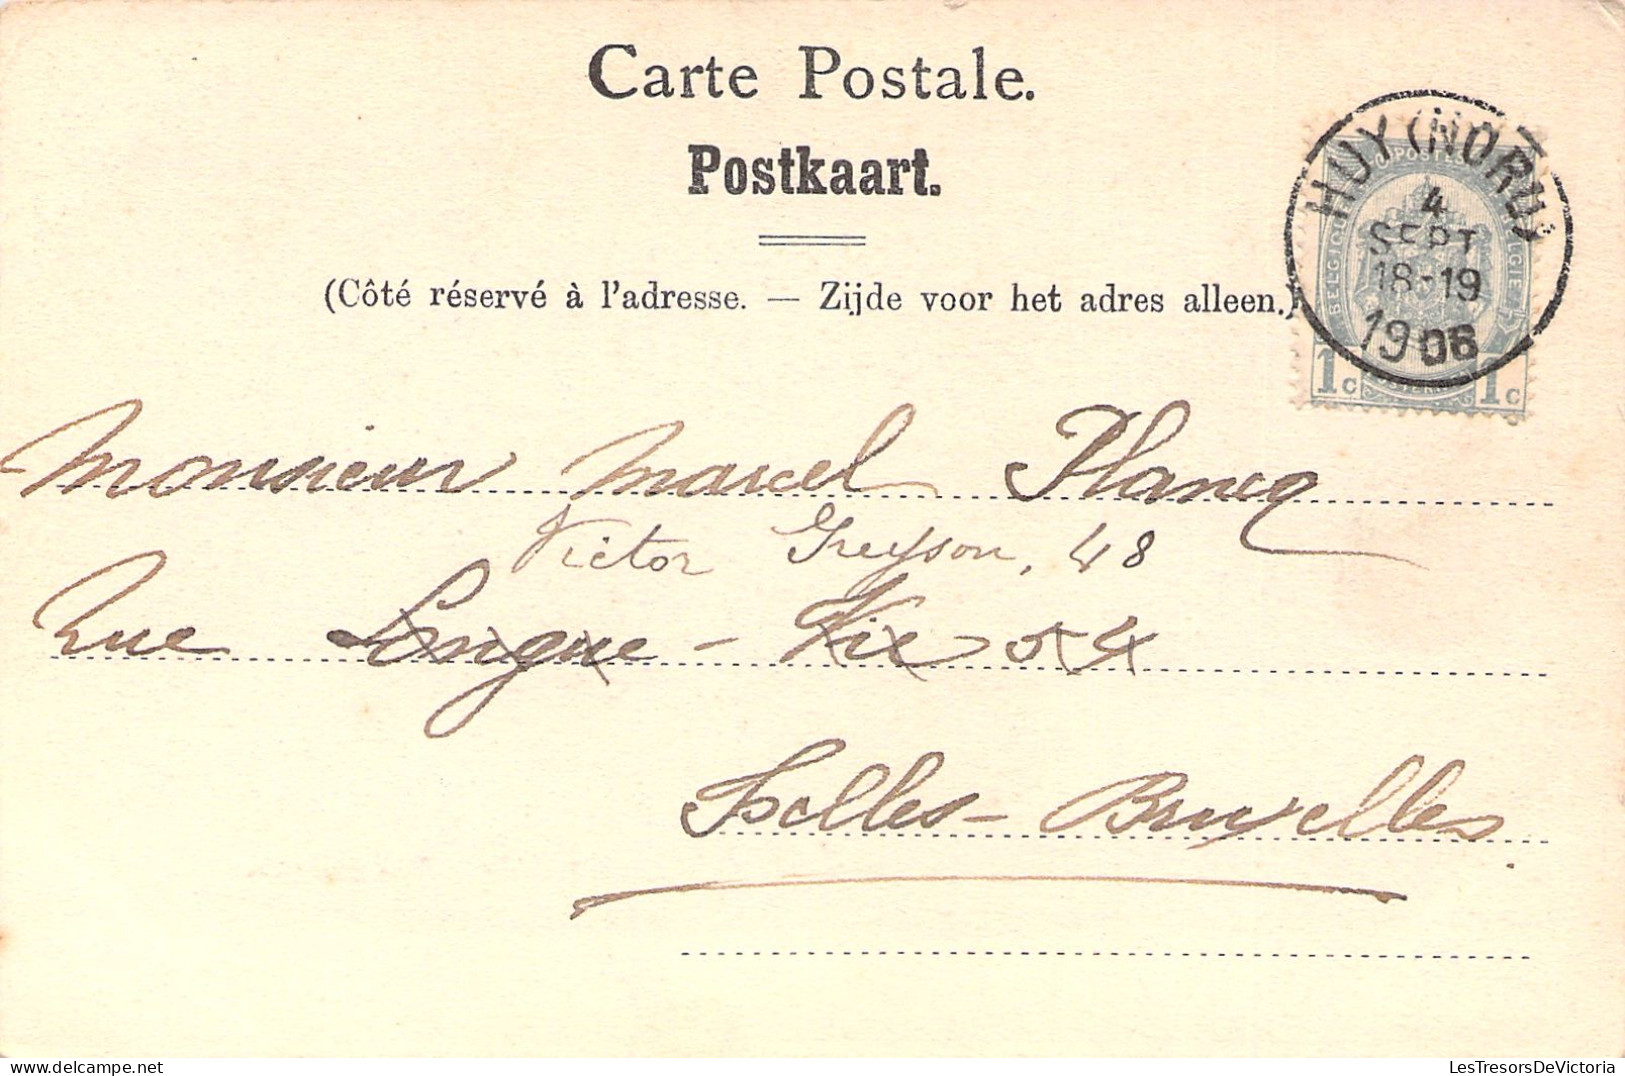 Carte Postale.
Postkaart.
(Côté réservé à l'adresse. — Zijde voor het adres alleen.)
HUY (NORD)
4
SEPT
18-19
1906
BELGIQUE
1c 1c
Monsieur Marcel Plancq
Victor Greyson, 48
Rue Longue-Vie 54
Ixelles - Bruxelles
LesTresorsDeVictoria